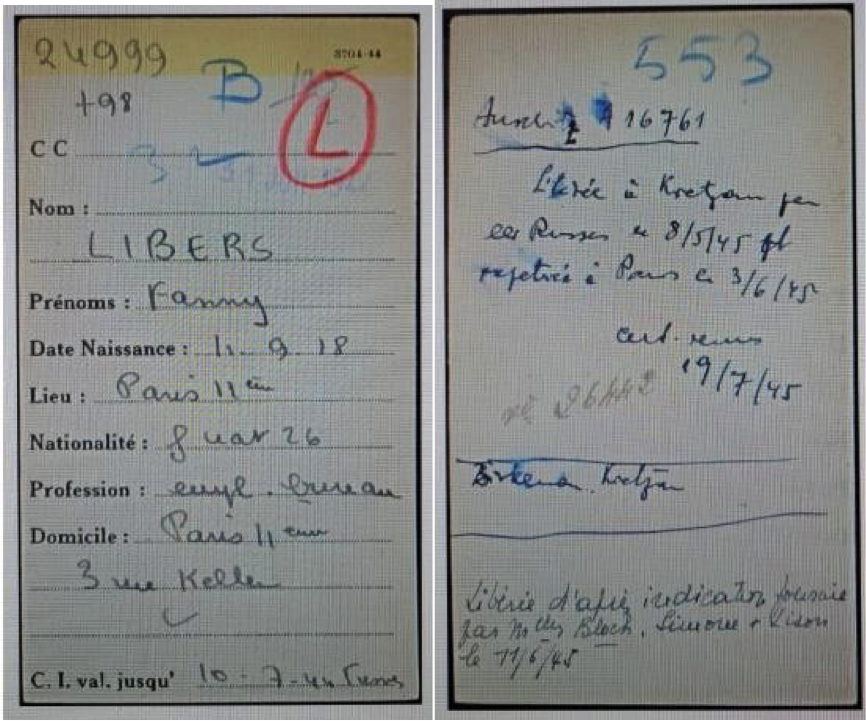 24999
3704-44
+98
B
L
C C
Nom :
LIBERS
Prénoms : Fanny
Date Naissance : 11. 9. 18
Lieu : Paris 11 ème
Nationalité : f nat 26
Profession : empl. bureau
Domicile : Paris 11 eme
3 rue Keller
C. I. val. jusqu' 10-7-44
553
16761
Libérée à Kretzan par
les Russes le 8/5/45 et
rapatriée à Paris le 3/6/45
cert. remis
19/7/45
n° 26442
Birkenau. Kretzan
Libérée d'après indication fournie
par Mlles Bloch, Simone +
le 11/6/45